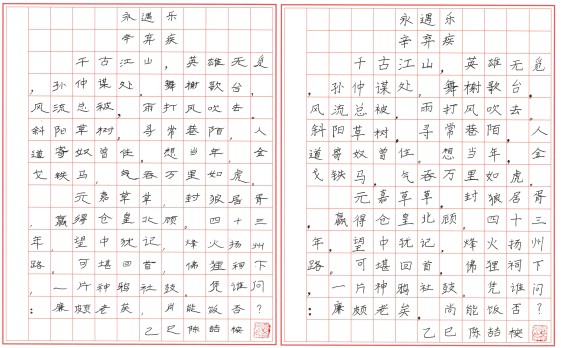 永遇乐
辛弃疾
千古江山,英雄无觅
,孙仲谋处。舞榭歌台,
风流总被,雨打风吹去。
斜阳草树,寻常巷陌,人
道寄奴曾住。想当年,金
戈铁马,气吞万里如虎。
元嘉草草,封狼居胥
,赢得仓皇北顾。四十三
年,望中犹记,烽火扬州
路。可堪回首,佛狸祠下
,一片神鸦社鼓。凭谁问
:廉颇老矣,尚能饭否?
乙巳陈喆
永遇乐
辛弃疾
千古江山,英雄无觅
,孙仲谋处。舞榭歌台,
风流总被,雨打风吹去。
斜阳草树,寻常巷陌,人
道寄奴曾住。想当年,金
戈铁马,气吞万里如虎。
元嘉草草,封狼居胥
,赢得仓皇北顾。四十三
年,望中犹记,烽火扬州
路。可堪回首,佛狸祠下
,一片神鸦社鼓。凭谁问
:廉颇老矣,尚能饭否?
乙巳陈喆